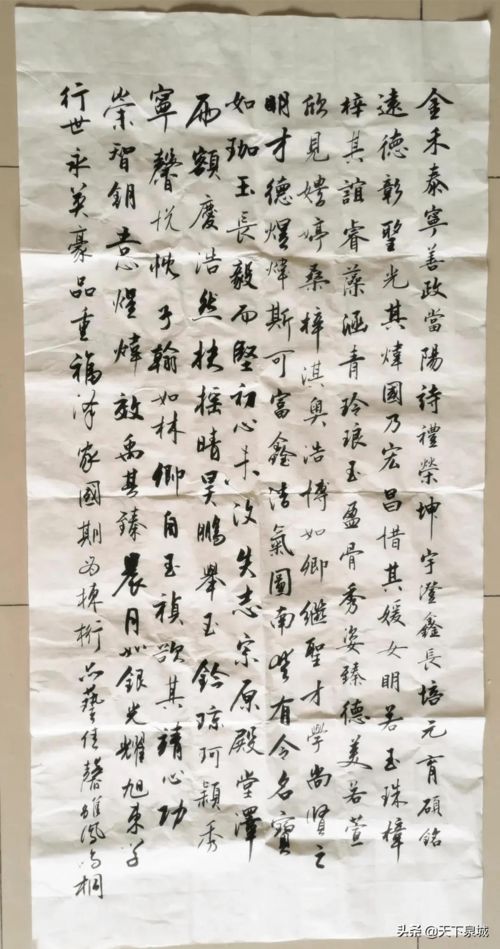 金禾泰寧善政當陽詩禮榮坤宇澄鑫長培元育碩銘
遠德彰聖光其煒國乃宏昌惜其媛女明若玉珠樟
梓其誼睿藻涵青玲琅玉盈骨秀姿臻德美若萱
欣見娉婷桑梓淇奥浩博如卿繼聖才學尚賢之
明才德煜煒斯可富鑫氣圖南有令名寶
如珈玉長毅而堅初心未汶失志宗原殿堂澤
雨額慶浩然扶摇晴昊鵬舉玉鈴琼珂穎秀
寧馨悦于翰如林卿自玉禎欲其靖心功
崇智鈅煜煒效禹其臻晨月如銀光耀旭東
行世永英豪品重福澤家國期为棟桁品藝佳馨雛鳳鸣桐
头条@天下泉城